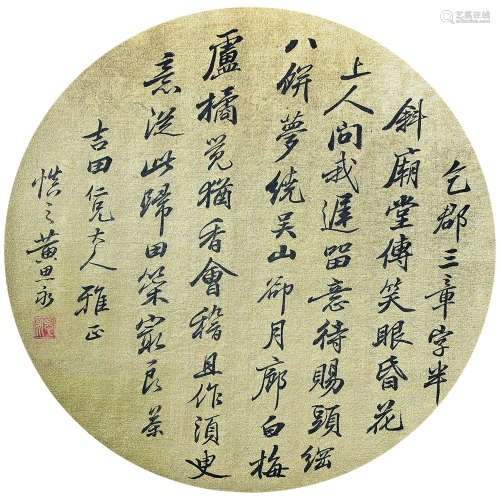 乞郡三章字半
斜廟堂傳笑眼昏花
上人問我遲留意待賜頭綱
八餅夢繞吴山卻月廊白梅
盧橘覺猶香會稽且作須臾
意從此歸田策最良 菜
吉田仁兄大人雅正
慎之黄思永